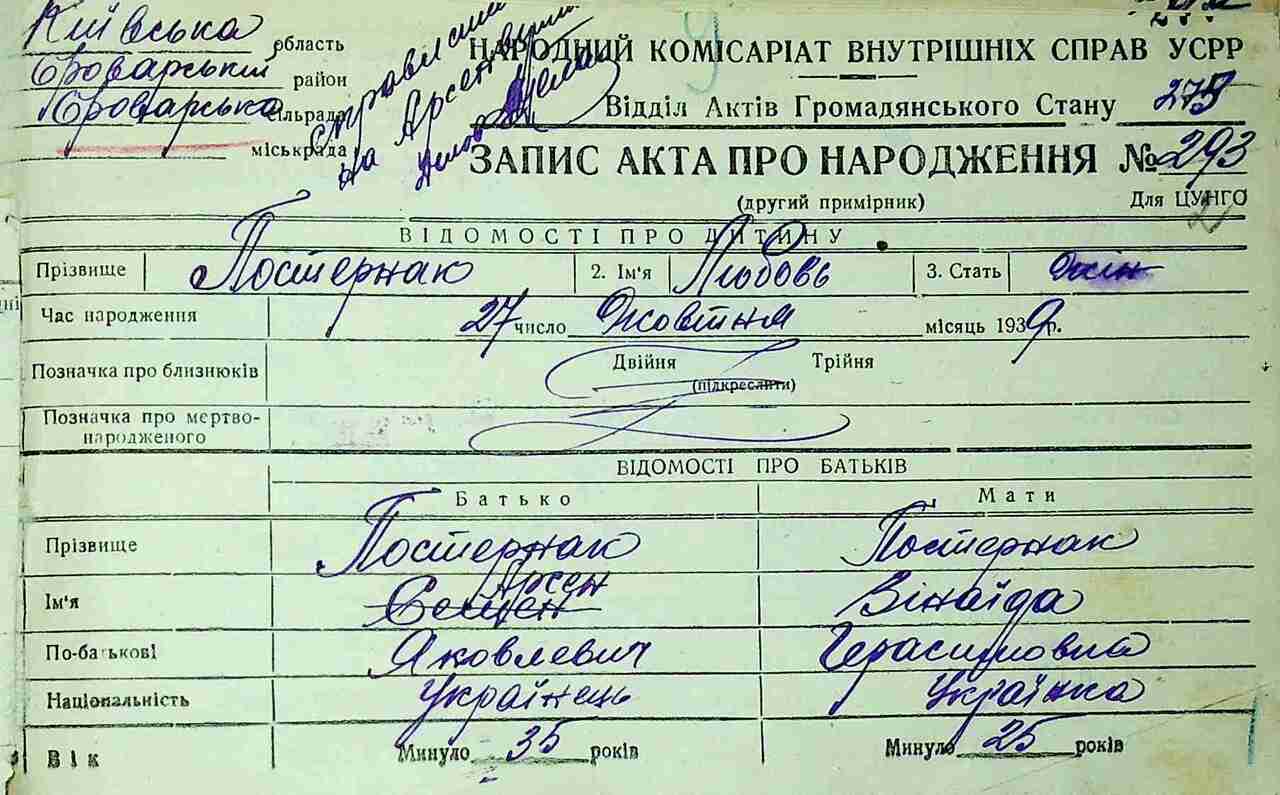 Київська область
Броварський район
Броварська сільрада
міськрада
справлени
на Арсен
НАРОДНИЙ КОМІСАРІАТ ВНУТРІШНІХ СПРАВ УСРР
Відділ Актів Громадянського Стану 275
ЗАПИС АКТА ПРО НАРОДЖЕННЯ № 293
(другий примірник) Для ЦУНГО
ВІДОМОСТІ ПРО ДИТИНУ
Прізвище Постернак 2. Ім'я Любовь 3. Стать жін
Час народження 27 число Жовтня місяць 1939 р.
Позначка про близнюків Двійня Трійня
(підкреслити)
Позначка про мертво-
народженого
ВІДОМОСТІ ПРО БАТЬКІВ
Батько Мати
Прізвище Постернак Постернак
Арсен
Ім'я Семен Зінаїда
По-батькові Яковлевич Герасимовна
Національність Українець Українка
Вік Минуло 35 років Минуло 25 років